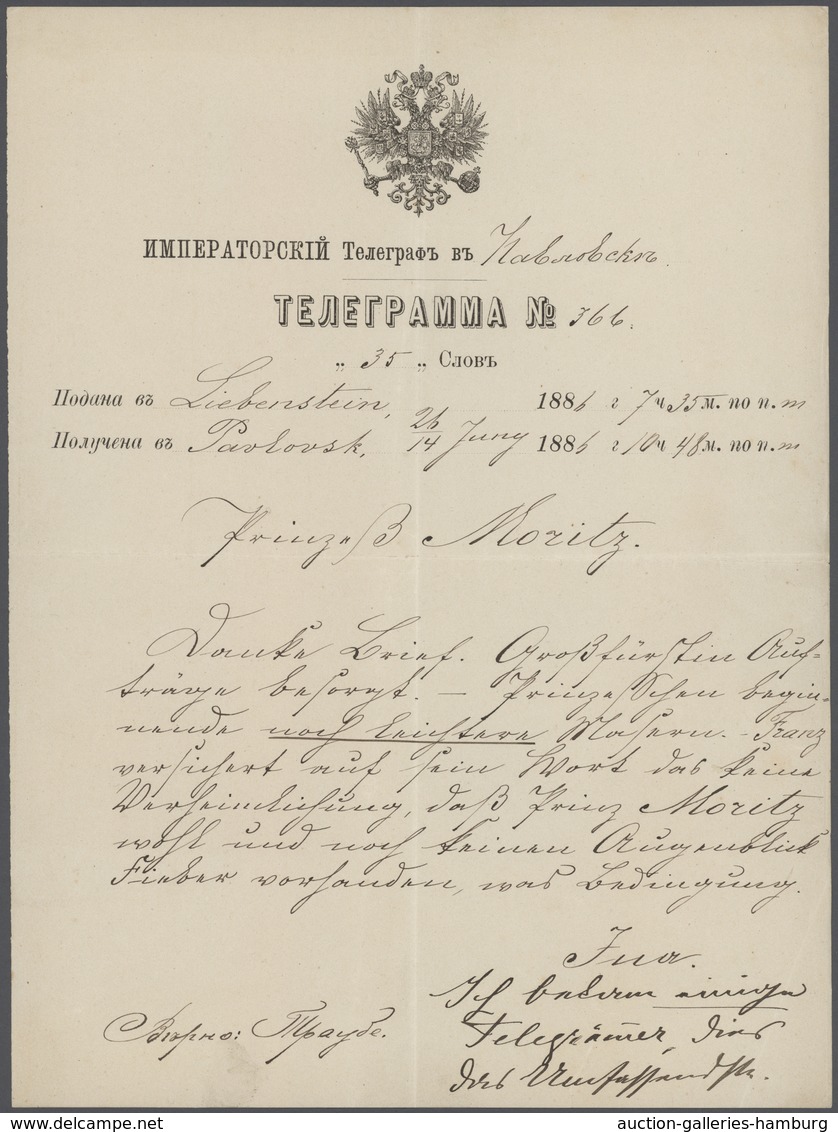 ИМПЕРАТОРСКІЙ Телеграфъ въ Павловскѣ.
ТЕЛЕГРАММА № 366.
„ 35 „ Словъ
Подана въ Liebenstein, 1886 г 7 ч 35 м. по п. m
Получена въ Pavlovsk, 26/14 Juny 1886 г 10 ч 48 м. по п. m
Prinzeß Moritz.
Danke Brief. Großfürstin Auf-
träge besorgt. – Prinzesschen begin-
nende noch leichtere Masern. - Franz
versichert auf sein Wort das keine
Verheimlichung, daß Prinz Moritz
wohl und noch keinen Augenblick
Fieber vorhanden, was Bedingung.
Ina.
Ich bekam einige
Вѣрно: Траубе.
Telegramme, dies
das Umfassendste.
auction-galleries-hamburg